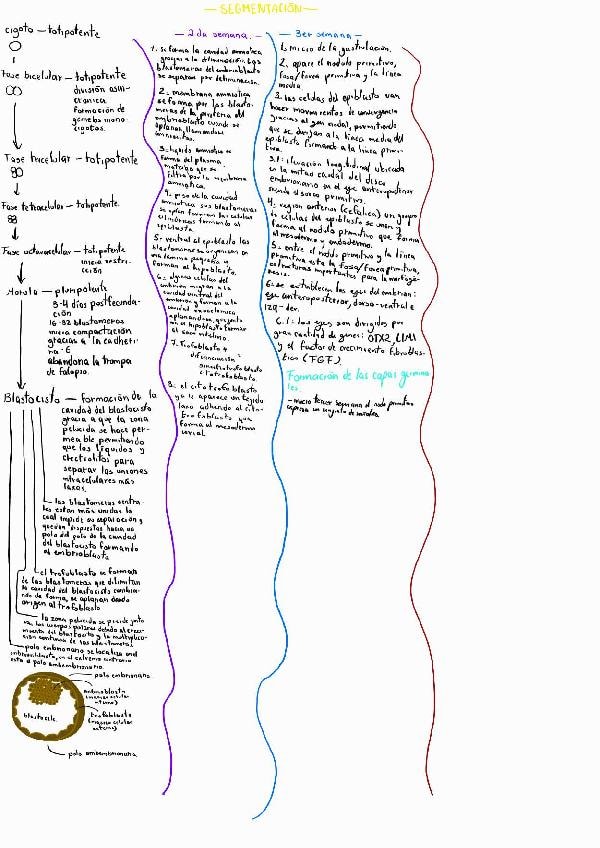 — SEGMENTACIÓN —
cigoto — totipotente
Fase bicelular — totipotente
división asin-
crónica
formación de
gemelos mono-
cigotos.
Fase tricelular — totipotente
Fase tetracelular — totipotente.
Fase octavacelular — totipotente
inicia restri-
cción
Morula — pluripotente
3-4 días postfecunda-
ción
16-32 blastomeras
inicia compactación
gracias a la cadheri-
na-E
abandona la trompa
de falopio.
Blastocisto — formación de la
cavidad del blastocisto
gracia a que la zona
pelucida se hace per-
meable permitiendo
que los líquidos y
electrolitos para
separar las uniones
intracelulares más
laxas.
las blastomeras centra-
les estan más unidas lo
cual impide su separación y
quedan dispuestas hacia un
polo del polo de la cavidad
del blastocisto formando
el embrioblasto
el trofoblasto se forman
de las blastomeras que delimitan
la cavidad del blastocisto cambian-
do de forma, se aplanan dando
origen al trofoblasto
la zona pelucida se pierde junto
con los cuerpos polares debido al creci-
miento del blastocisto y la multiplica-
ción continua de las blastomeras
polo embrionario se localiza en el
embrioblasto, en el extremo contrario
esta el polo anembrionario.
polo embrionario.
embrioblasto
(masa celular
interna)
trofoblasto
(masa celular
externa)
blastocele.
polo anembrionario
— 2da semana. —
1. se forma la cavidad amniótica
gracias a la deliminación. Las
blastomeras del embrioblasto
se separan por deliminación.
2. membrana amniótica
se forma por las blasto-
meras de la periferia del
embrioblasto cuando se
aplanan llamandose
amniocitos.
3. liquido amniótico se
forma del plasma
materno que se
filtra por la membrana
amniótica.
4. piso de la cavidad
amniótica sus blastomeras
formando al
epiblasto
5. ventral al epiblasto las
blastomeras se organizan en
una lámina pequeña y
forman al hipoblasto.
6. algunas celulas del
migran a la
cavidad ventral del
embrión y forman a la
cavidad exocelómica
aplanandose, que junto
con el hipoblasto forman
al saco vitelino.
7. Trofoblasto
diferenciación
sincitiotrofoblasto
citotrofoblasto.
8. el citotrofoblasto
ya le aparece un tejido
laxo adherido al cito-
trofoblasto que
forma al mesodermo
— 3er semana —
1. inicio de la gastrulación.
2. aparece el nodulo primitivo,
fosa/fovea primitiva y la línea
media
3. las celdas del epiblasto van
hacer movimientos de convergencia
gracias al gen nodal, permitiendo
que se dirijan a la línea media del
epiblasto formando a la línea primi-
tiva.
3.1: elevación longitudinal ubicada
en la mitad caudal del disco
embrionario en el eje anteroposterior
siendo el surco primitivo.
4. región anterior (cefálica) un grupo
de celulas del epiblasto se unen y
forma al nodulo primitivo que forma
al mesodermo y endodermo.
5. entre el nodulo primitivo y la línea
primitiva esta la fosa/fovea primitiva,
estructuras importantes para la morfogé-
nesis.
6. se establecen los ejes del embrión:
eje anteroposterior, dorso-ventral e
izq-der.
6.1: los ejes son divigidos por
gran cantidad de genes: OTX2, LIM1
y el factor de crecimiento fibroblás-
tico (FGF)
Formación de las capas germina-
les.
- inicio tercer semana el nodo primitivo
expresa un conjunto de